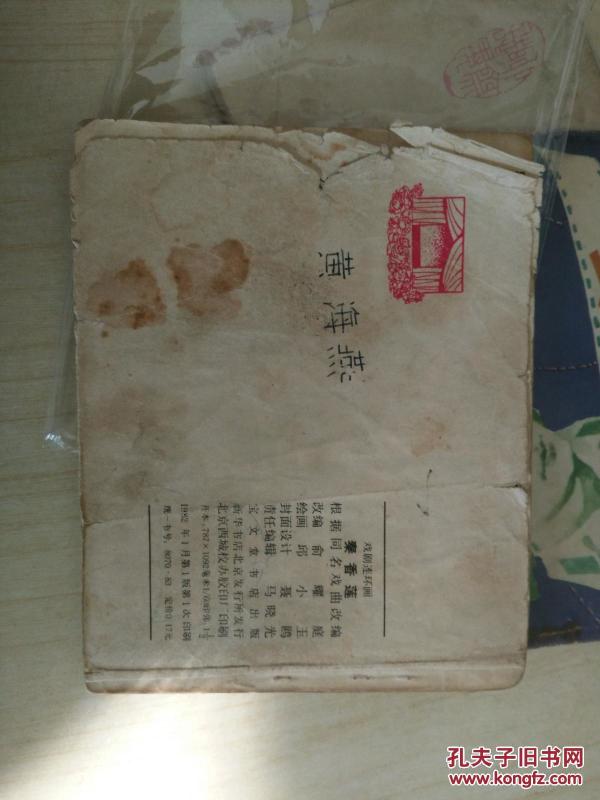 黄海燕
戏剧连环画
秦香莲
根据同名戏曲改编
改编 俞耀庭
绘画 邱小玉
封面设计 聂鸥
责任编辑 马晓光
宝文堂书店出版
新华书店北京发行所发行
北京西城校办胶印厂印刷
开本:787×1092毫米1/60印张:1 1/2
1982年1月第1版第1次印刷
统一书号:8070·83 定价0.17元
孔夫子旧书网
www.kongfz.com